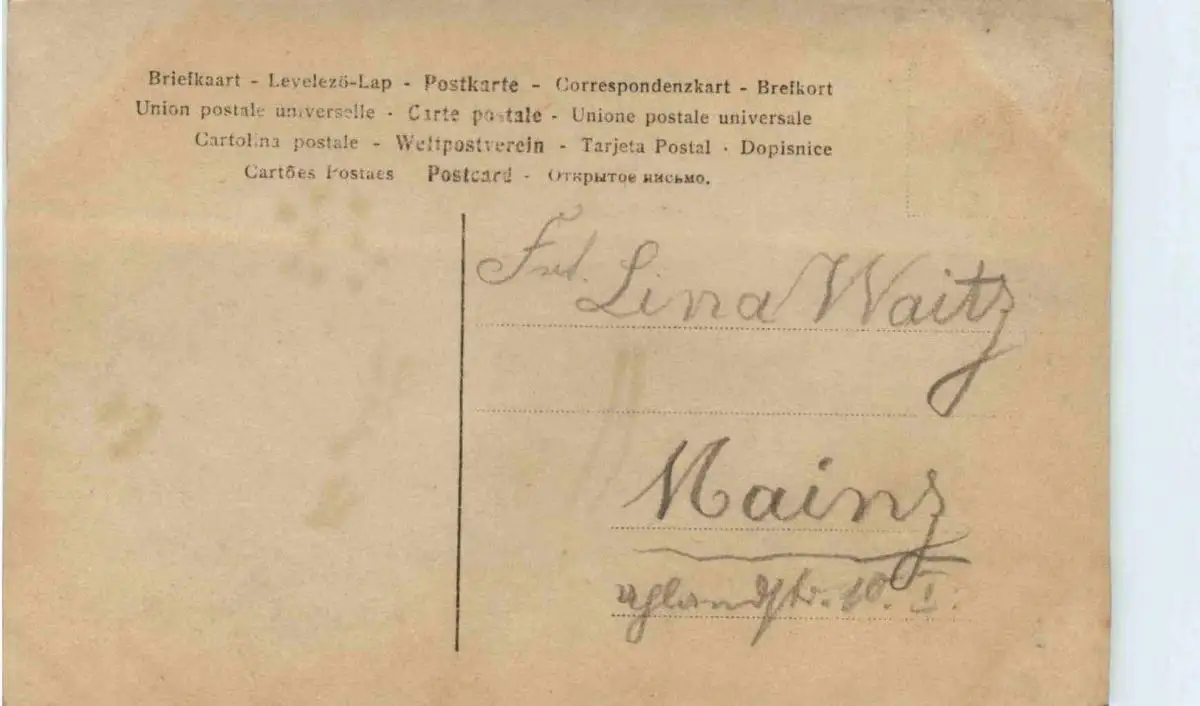 Briefkaart - Levelező-Lap - Postkarte - Correspondenzkart - Brefkort
Union postale universelle - Carte postale - Unione postale universale
Cartolina postale - Weltpostverein - Tarjeta Postal - Dopisnice
Cartões Postaes Postcard - Открытое письмо.
Frl. Lina Waitz
Mainz
Uhlandstr. 10. I.